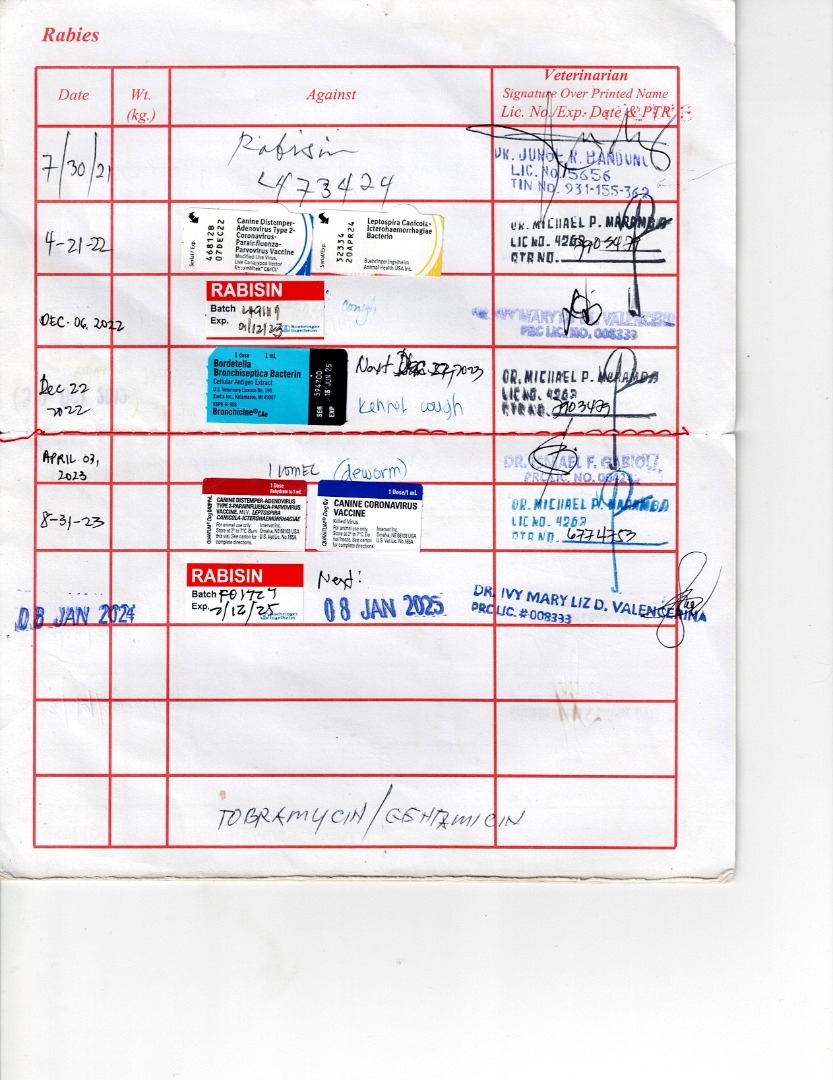 Rabies
Date
Wt.
(kg.)
Against
Veterinarian
Signature Over Printed Name
Lic. No./Exp. Date & PTR
7/30/21
Rabisin
L473424
DR. JUNOE R.
LIC. No. 5656
TIN NO. 931-155-362
4-21-22
Serial / Exp.
46812B
07DEC22
Canine Distemper-
Adenovirus Type 2-
Coronavirus-
Parainfluenza-
Parvovirus Vaccine
Modified Live Virus,
Live Canarypox Vector
Recombitek® C6/CV
Serial/Exp.
32334
20APR24
Leptospira Canicola-
Icterohaemorrhagiae
Bacterin
Boehringer Ingelheim
Animal Health USA Inc.
DR. MICHAEL P. MARAMBA
LIC NO. 4269
PTR NO.
DEC. 06, 2022
RABISIN
Batch
Exp.
Boehringer
Ingelheim
DR. IVY MARY VALENCERINA
PRC LIC. NO. 008333
Dec 22
2022
1 dose 1 mL
Bordetella
Bronchiseptica Bacterin
Cellular Antigen Extract
U.S. Veterinary License No. 190
Zoetis Inc., Kalamazoo, MI 49007
Bronchicine® CAe
SER 594700
EXP 18 JUN 25
Next Dec 22, 2023
kennel cough
DR. MICHAEL P. MARAMBA
LIC NO. 4269
PTR NO. 2903479
APRIL 03,
2023
(deworm)
F. GABIOLI
PRC LIC. NO.
8-31-23
1 Dose
Rehydrate to 1 mL
CANINE DISTEMPER-ADENOVIRUS
TYPE 2-PARAINFLUENZA-PARVOVIRUS
VACCINE, MLV, LEPTOSPIRA
CANICOLA-ICTEROHAEMORRHAGIAE
For animal use only.
Store at 2° to 7°C. Burn
this vial. See carton for
complete directions.
Intervet Inc.
Omaha, NE 68103 USA
U.S. Vet Lic. No. 165A
1 Dose/1 mL
CANINE CORONAVIRUS
VACCINE
Killed Virus
For animal use only.
Store at 2° to 7°C. Do
not freeze. See carton
for complete directions.
Intervet Inc.
Omaha, NE 68103 USA
U.S. Vet Lic. No. 165A
DR. MICHAEL P. MARAMBA
LIC NO. 4269
PTR NO. 6774753
08 JAN 2024
RABISIN
Batch
Exp. 2/12/25
Boehringer
Ingelheim
Next:
08 JAN 2025
DR. IVY MARY LIZ D. VALENCERINA
PRC LIC. # 008333
TOBRAMYCIN/GENTAMICIN